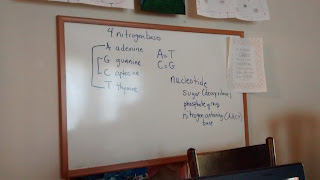 4 nitrogen bases
A adenine
G guanine
C cytosine
T thymine
A=T
C=G
nucleotide
sugar (deoxyribose)
phosphate group
nitrogen containing
base